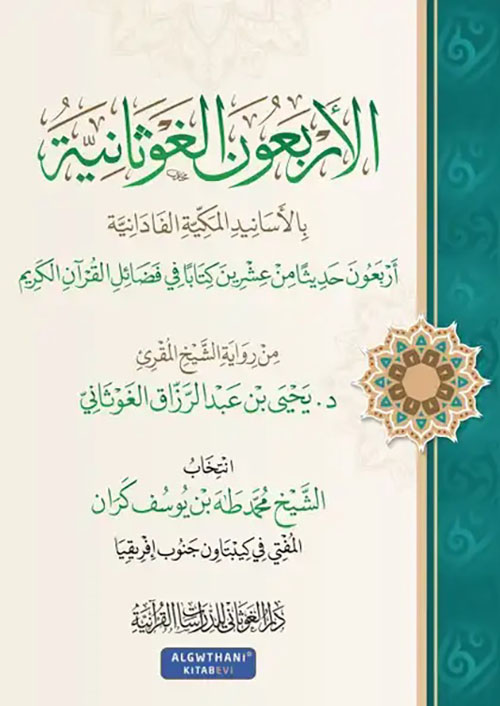 الأَرْبَعُونَ الغَوْثَانِيَّة
بِالأَسَانِيدِ المَكِّيَّةِ الفَادَانِيَّة
أَرْبَعُونَ حَدِيثًا مِنْ عِشْرِينَ كِتَابًا فِي فَضَائِلِ القُرْآنِ الكَرِيمِ
مِنْ رِوَايَةِ الشَّيْخِ المُقْرِئِ
د. يَحْيَى بْنِ عَبْدِ الرَّزَّاقِ الغَوْثَانِيّ
انْتِخَابُ
الشَّيْخِ مُحَمَّد طَهَ بْنِ يُوسُفَ كَرَان
المُفْتِي فِي كِيبْتَاون جَنُوبِ إِفْرِيقِيَا
دار الغوثاني للدراسات القرآنية
ALGWTHANI®
KITABEVI